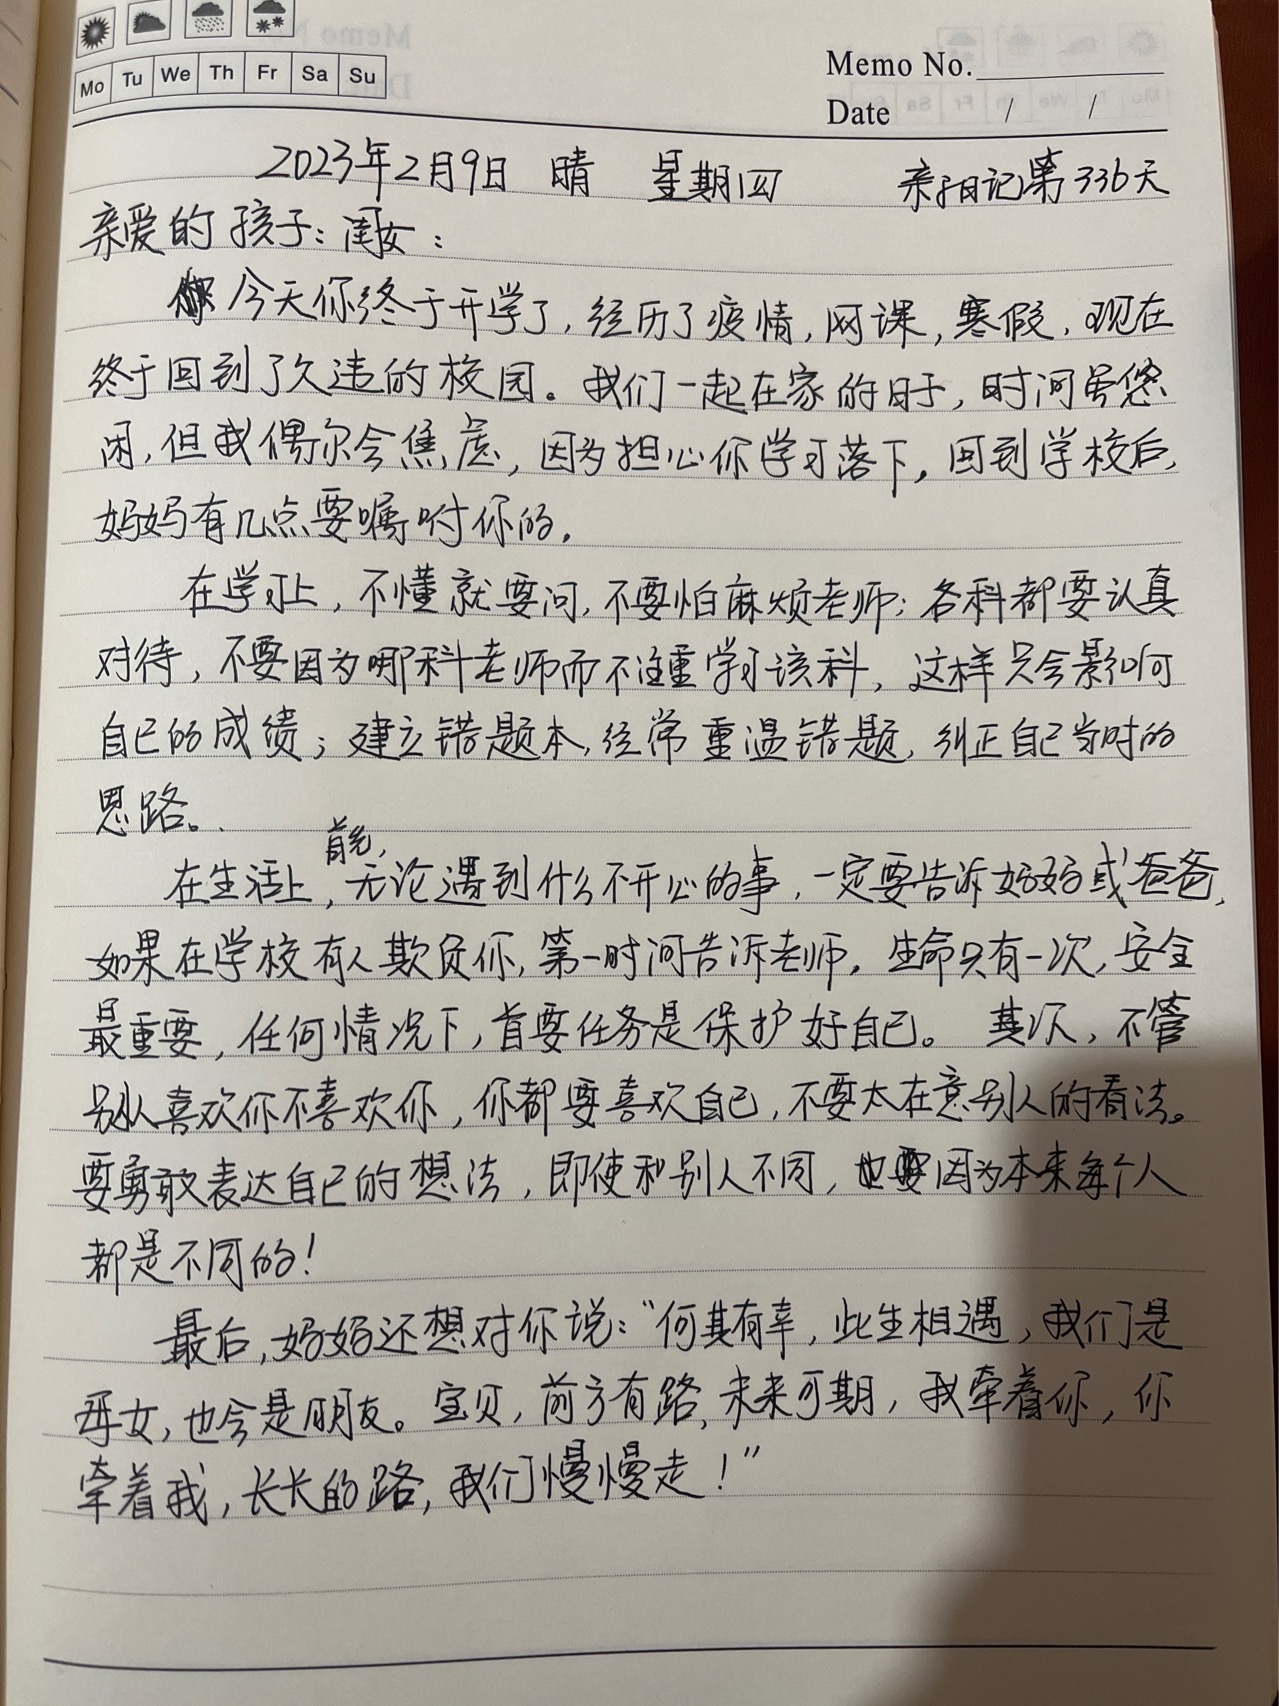 Mo Tu We Th Fr Sa Su
Memo No.
Date / /
2023年2月9日 晴 星期四 亲子日记第336天
亲爱的孩子：闺女：
今天你终于开学了，经历了疫情，网课，寒假，现在
终于回到了久违的校园。我们一起在家的日子，时间虽悠
闲，但我偶尔会焦虑，因为担心你学习落下，回到学校后，
妈妈有几点要嘱咐你的。
在学习上，不懂就要问，不要怕麻烦老师；各科都要认真
对待，不要因为哪科老师而不注重学习该科，这样只会影响
自己的成绩；建立错题本，经常重温错题，纠正自己当时的
思路。
在生活上，首先，无论遇到什么不开心的事，一定要告诉妈妈或爸爸，
如果在学校有人欺负你，第一时间告诉老师。生命只有一次，安全
最重要，任何情况下，首要任务是保护好自己。其次，不管
别人喜欢你不喜欢你，你都要喜欢自己，不要太在意别人的看法。
要勇敢表达自己的想法，即使和别人不同，因为本来每个人
都是不同的！
最后，妈妈还想对你说：“何其有幸，此生相遇，我们是
母女，也会是朋友。宝贝，前方有路，未来可期，我牵着你，你
牵着我，长长的路，我们慢慢走！”